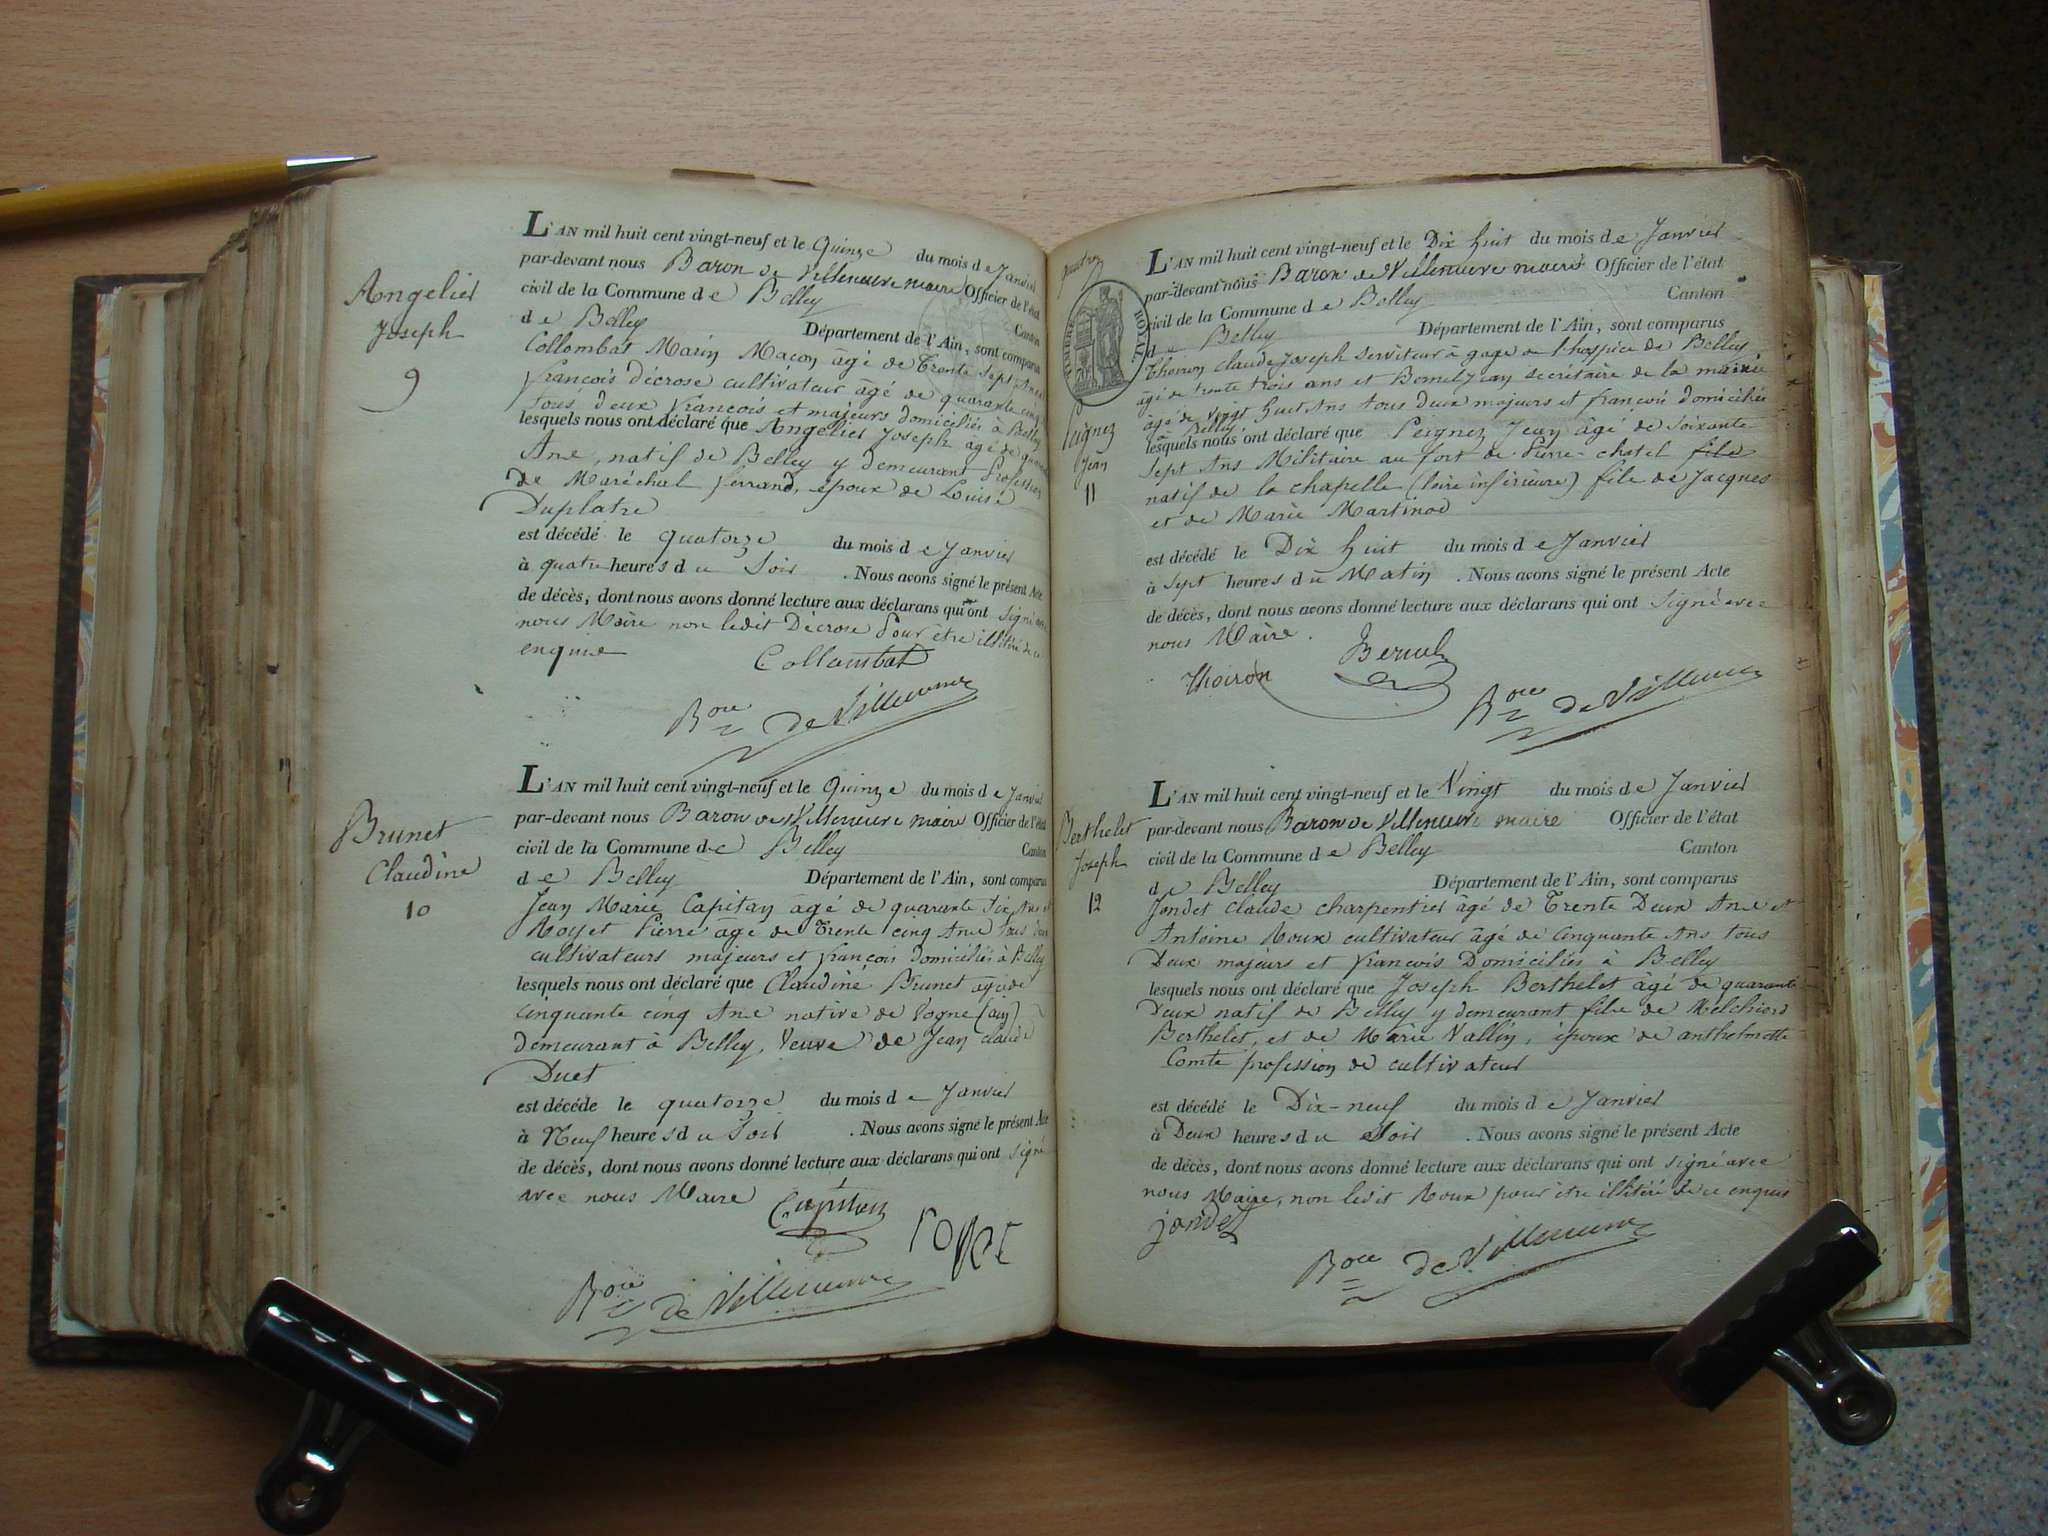 Angelier
Joseph
9
L'AN mil huit cent vingt-neuf et le Quinze du mois de Janvier
par-devant nous Baron de Villeneuve maire Officier de l'état
civil de la Commune de Belley Canton
de Belley Département de l'Ain, sont comparus
Collombat Marin Maçon âgé de Trente sept Ans
françois Décrose cultivateur âgé de quarante cinq
tous deux françois et majeurs domiciliés à Belley
lesquels nous ont déclaré que Angelier Joseph âgé de
Ans, natif de Belley y demeurant Profession
De Maréchal ferrand, époux de Louise
Duplatre
est décédé le quatorze du mois de Janvier
à quatre heures du Soir . Nous avons signé le présent Acte
de décès, dont nous avons donné lecture aux déclarans qui ont signé avec
nous Maire non ledit Décrose Pour être illitéré de ce
enquis
Collombat
Bon de Villeneuve
Brunet
Claudine
10
L'AN mil huit cent vingt-neuf et le Quinze du mois de Janvier
par-devant nous Baron de Villeneuve maire Officier de l'état
civil de la Commune de Belley Canton
de Belley Département de l'Ain, sont comparus
Jean Marie Capitan âgé de quarante six Ans et
Roijet Pierre âgé de Trente cinq Ans tous deux
cultivateurs majeurs et françois domiciliés à Belley
lesquels nous ont déclaré que Claudine Brunet agée de
cinquante cinq Ans native de (ain)
demeurant à Belley, veuve de Jean claude
Duet
est décédé le quatorze du mois de Janvier
à Neuf heures du Soir . Nous avons signé le présent Acte
de décès, dont nous avons donné lecture aux déclarans qui ont signé
avec nous Maire
Capitan
Bon de Villeneuve
TIMBRE ROYAL
Peignez
Jean
11
L'AN mil huit cent vingt-neuf et le Dix huit du mois de Janvier
par-devant nous Baron de Villeneuve maire Officier de l'état
civil de la Commune de Belley Canton
de Belley Département de l'Ain, sont comparus
Thoiron claude Joseph serviteur à gage de l'hospice de Belley
agé de trente trois ans et Jean secrétaire de la mairie
âgé de vingt huit Ans tous deux majeurs et françois domiciliés
à Belley
lesquels nous ont déclaré que Peignez Jean âgé de soixante
sept Ans Militaire au fort de Pierre-chatel fils
natif de la chapelle (loire inférieure) fils de Jacques
et de Marie Martinod
est décédé le Dix huit du mois de Janvier
à sept heures du Matin . Nous avons signé le présent Acte
de décès, dont nous avons donné lecture aux déclarans qui ont signé avec
nous Maire.
Thoiron
Bon de Villeneuve
Berthelet
Joseph
12
L'AN mil huit cent vingt-neuf et le Vingt du mois de Janvier
par-devant nous Baron de Villeneuve maire Officier de l'état
civil de la Commune de Belley Canton
de Belley Département de l'Ain, sont comparus
Jondet claude charpentier âgé de Trente Deux Ans et
Antoine Roux cultivateur âgé de cinquante Ans tous
Deux majeurs et françois Domiciliés à Belley
lesquels nous ont déclaré que Joseph Berthelet âgé de quarante
Deux natif de Belley y demeurant fils de Melchiord
Berthelet, et de Marie Vallin, époux de anthelmette
Comte profession de cultivateur
est décédé le Dix-neuf du mois de Janvier
à Deux heures du Soir . Nous avons signé le présent Acte
de décès, dont nous avons donné lecture aux déclarans qui ont signé avec
nous Maire, non ledit Roux pour être illitéré de ce enquis
jondet
Bon de Villeneuve